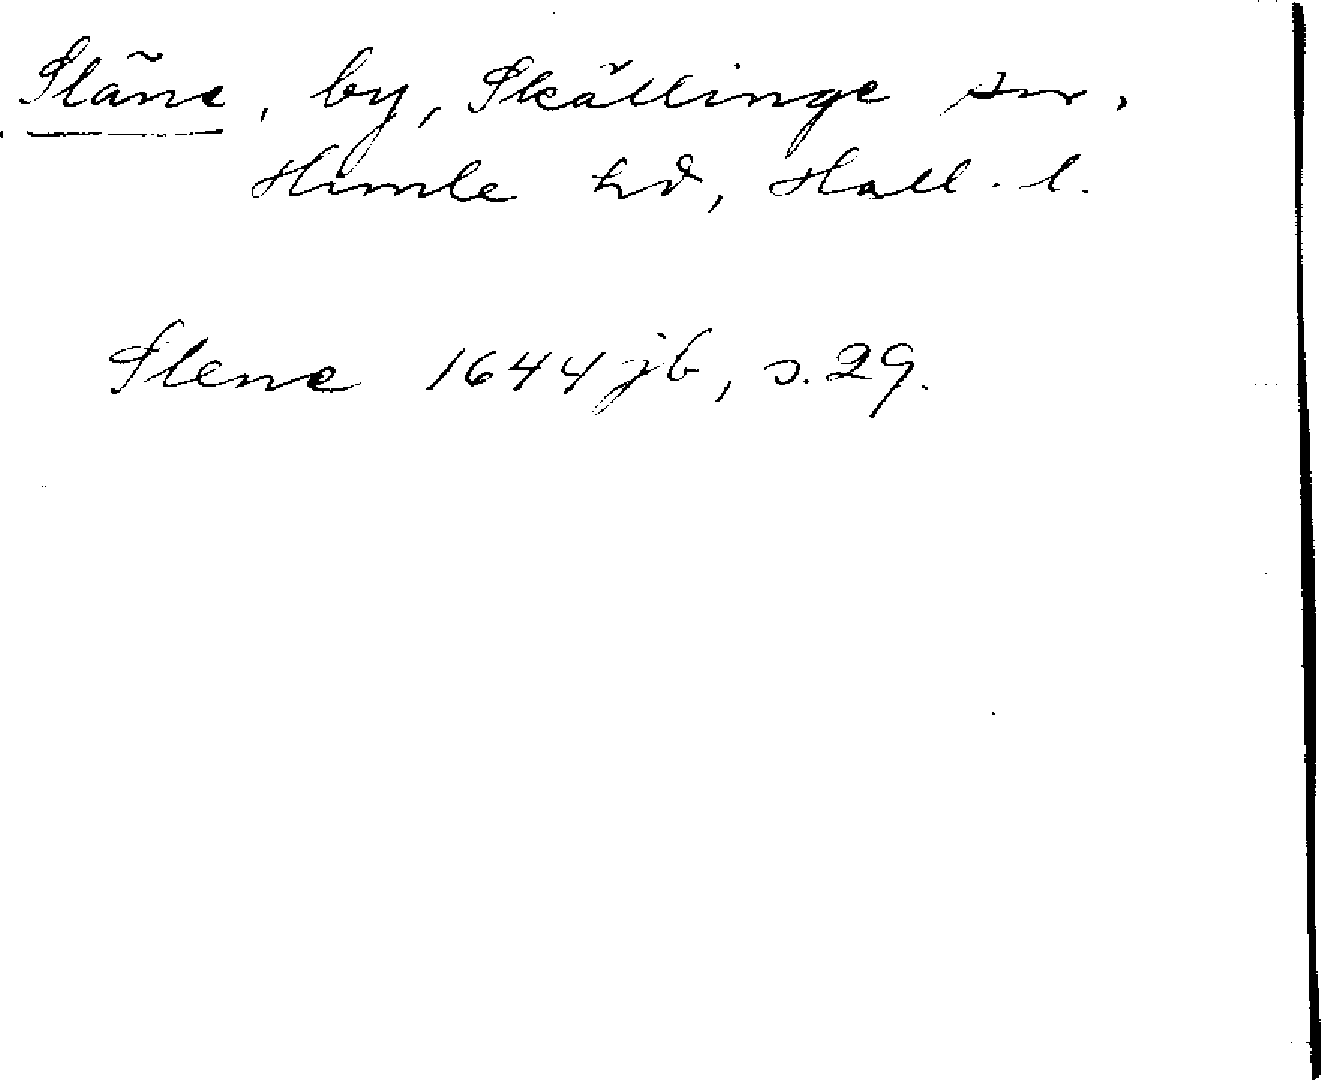 Släne, by, Skällinge sn,
Himle hd, Hall. l.
Slene 1644 jb, s. 29.